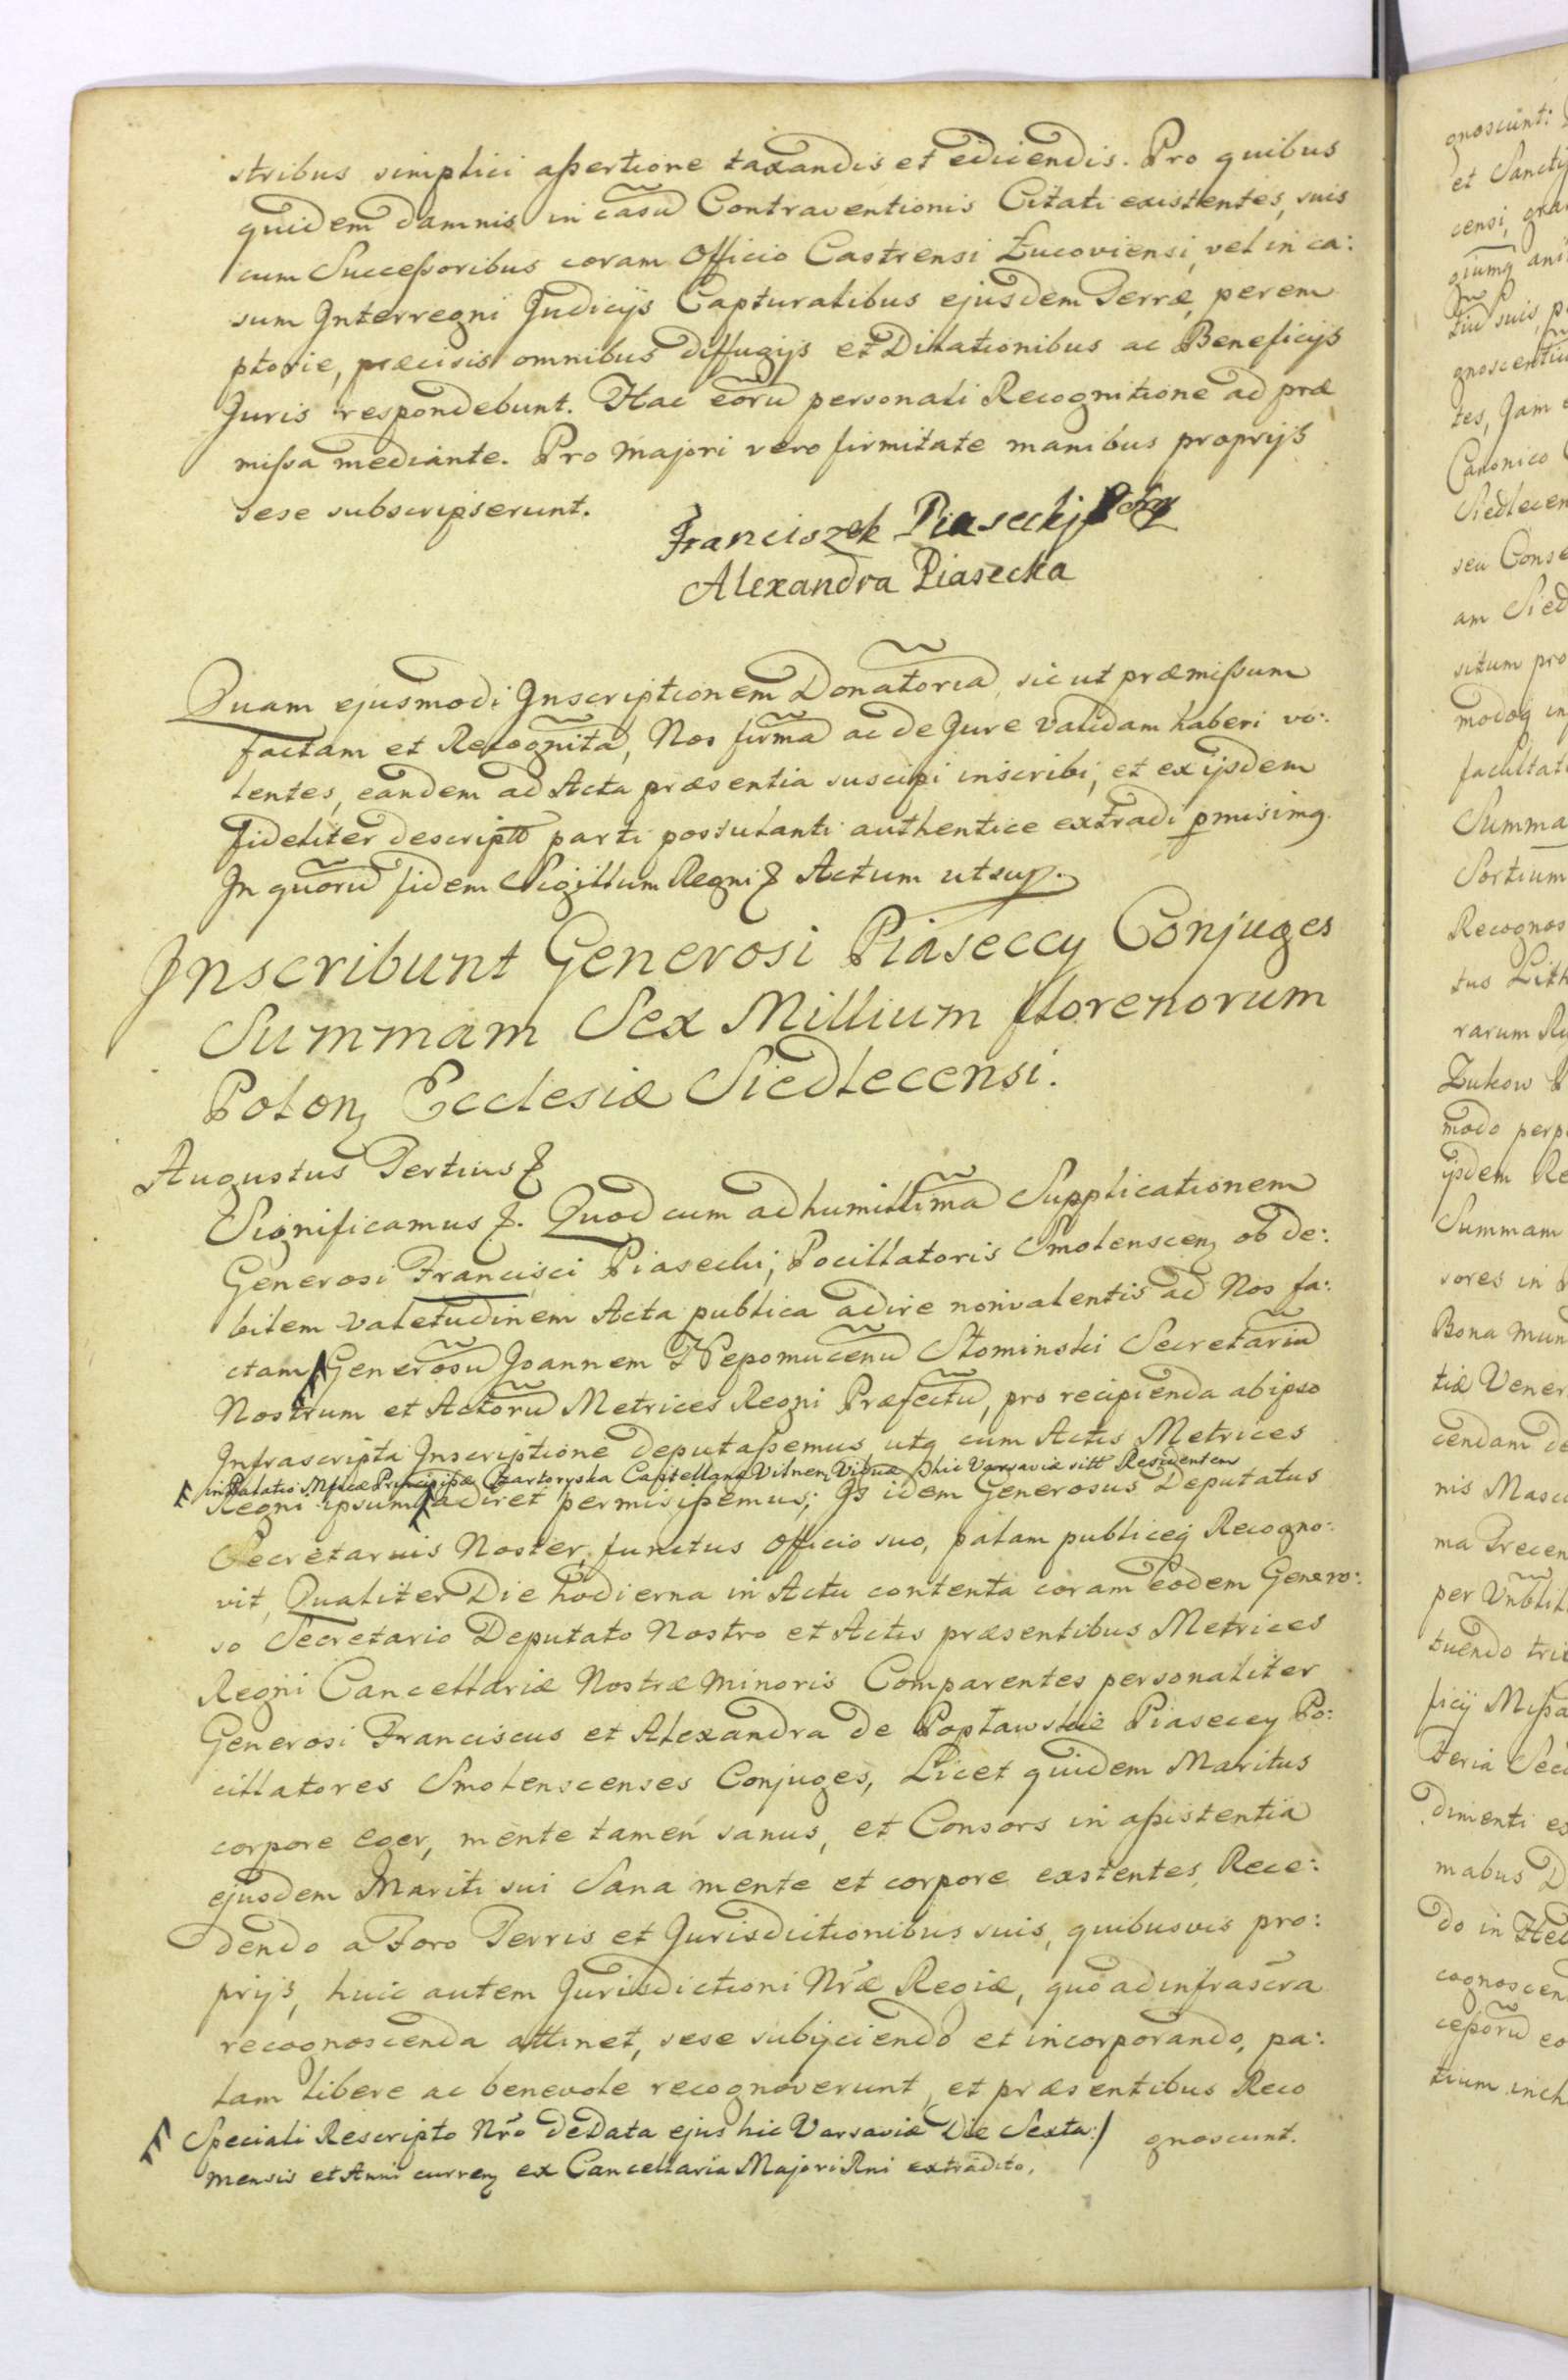 stribus simplici assertione taxandis et edicendis. Pro quibus
quidem damnis in casu Contraventionis Citati existentes, suis
cum Successoribus coram Officio Castrensi Łucoviensi, vel in ca:
sum Interregni Judicijs Capturalibus ejusdem Terræ, perem
ptorie, præcisis omnibus diffugijs et Dilationibus ac Beneficijs
Juris respondebunt. Hac eorũ personali Recognitione ad præ
missa mediante. Pro Majori vero firmitate manibus proprijs
sese subscripserunt.
Franciszek Piaseckj
Alexandra Piasecka
Quam ejusmodi Inscriptionem Donatoriã, sic ut præmissum
factam et Recognitã, Nos firmã ac de Jure Validam haberi vo:
lentes, eandem ad Acta præsentia suscipi inscribi, et ex ijsdem
fideliter descriptã parti postulanti authentice extradi pmisimq.
In quorũ fidem Sigillum Regni Actum ut sup.
Inscribunt Generosi Piaseccy Conjuges
Summam Sex Millium florenorum
Polon Ecclesiæ Siedlecensi.
Augustus Tertius
Significamus. Quod cum ad humillimã Supplicationem
Generosi Francisci Piasecki, Pocillatoris Smolenscen ob de:
bilem Valetudinem Acta publica adire non valentis ad Nos fa:
ctam Generosũ Joannem Nepomucenũ Słominski Secretariũ
Nostrum et Actorũ Metrices Regni Præfectũ, pro recipienda ab ipso
Infrascripta Inscriptione deputassemus, utq cum Actis Metrices
in Palatio Mficæ Principissæ Czartoryska Castellana Vilnen Viduæ hic Varsaviæ sitt Residentem
Regni ipsum adiret permisissemus; Is idem Generosus Deputatus
Secretarius Noster, functus Officio suo, palam publiceq Recogno:
vit, Qualiter Die hodierna in Actu contenta coram eodem Genero:
so Secretario Deputato Nostro et Actis præsentibus Metrices
Regni Cancellariæ Nostræ Minoris Comparentes personaliter
Generosi Franciscus et Alexandra de Popławskie Piaseccy Po:
cillatores Smolenscenses Conjuges, Licet quidem Maritus
corpore eger, mente tamen sanus, et Consors in assistentia
ejusdem Mariti sui Sana mente et corpore existentes, Rece:
dendo a Foro Terris et Jurisdictionibus suis, quibusvis pro:
prijs, huic autem Jurisdictioni Nræ Regiæ, quo ad infrascra
recognoscenda attinet, sese subijciendo et incorporando, pa:
lam libere ac benevole recognoverunt, et præsentibus Reco
gnoscunt.
Speciali Rescripto Nro de Data ejus hic Varsaviæ Die Sexta
mensis et Anni curren ex Cancellaria Majori Rni extradito.
gnoscunt:
et Sancti
censi, gra
giumq ani
tiũ suis, p
gnoscentiũ
tes, Jam
Canonico
Siedlecen
seu Conse
am Sied
situm pro
modoq in
facultat
Summa
Sortium
Recognos
tus Lith
rarum Re
Łukow
modo perp
ijsdem Re
Summam
sores in
Bona mun
tiæ Vener
cendam de
nis Mascu
ma Trecen
per
tuendo tri
ficij Missa
Feria Sec
dimenti es
mabus D
do in Heb
cognoscen
cessorũ eo
tium inch